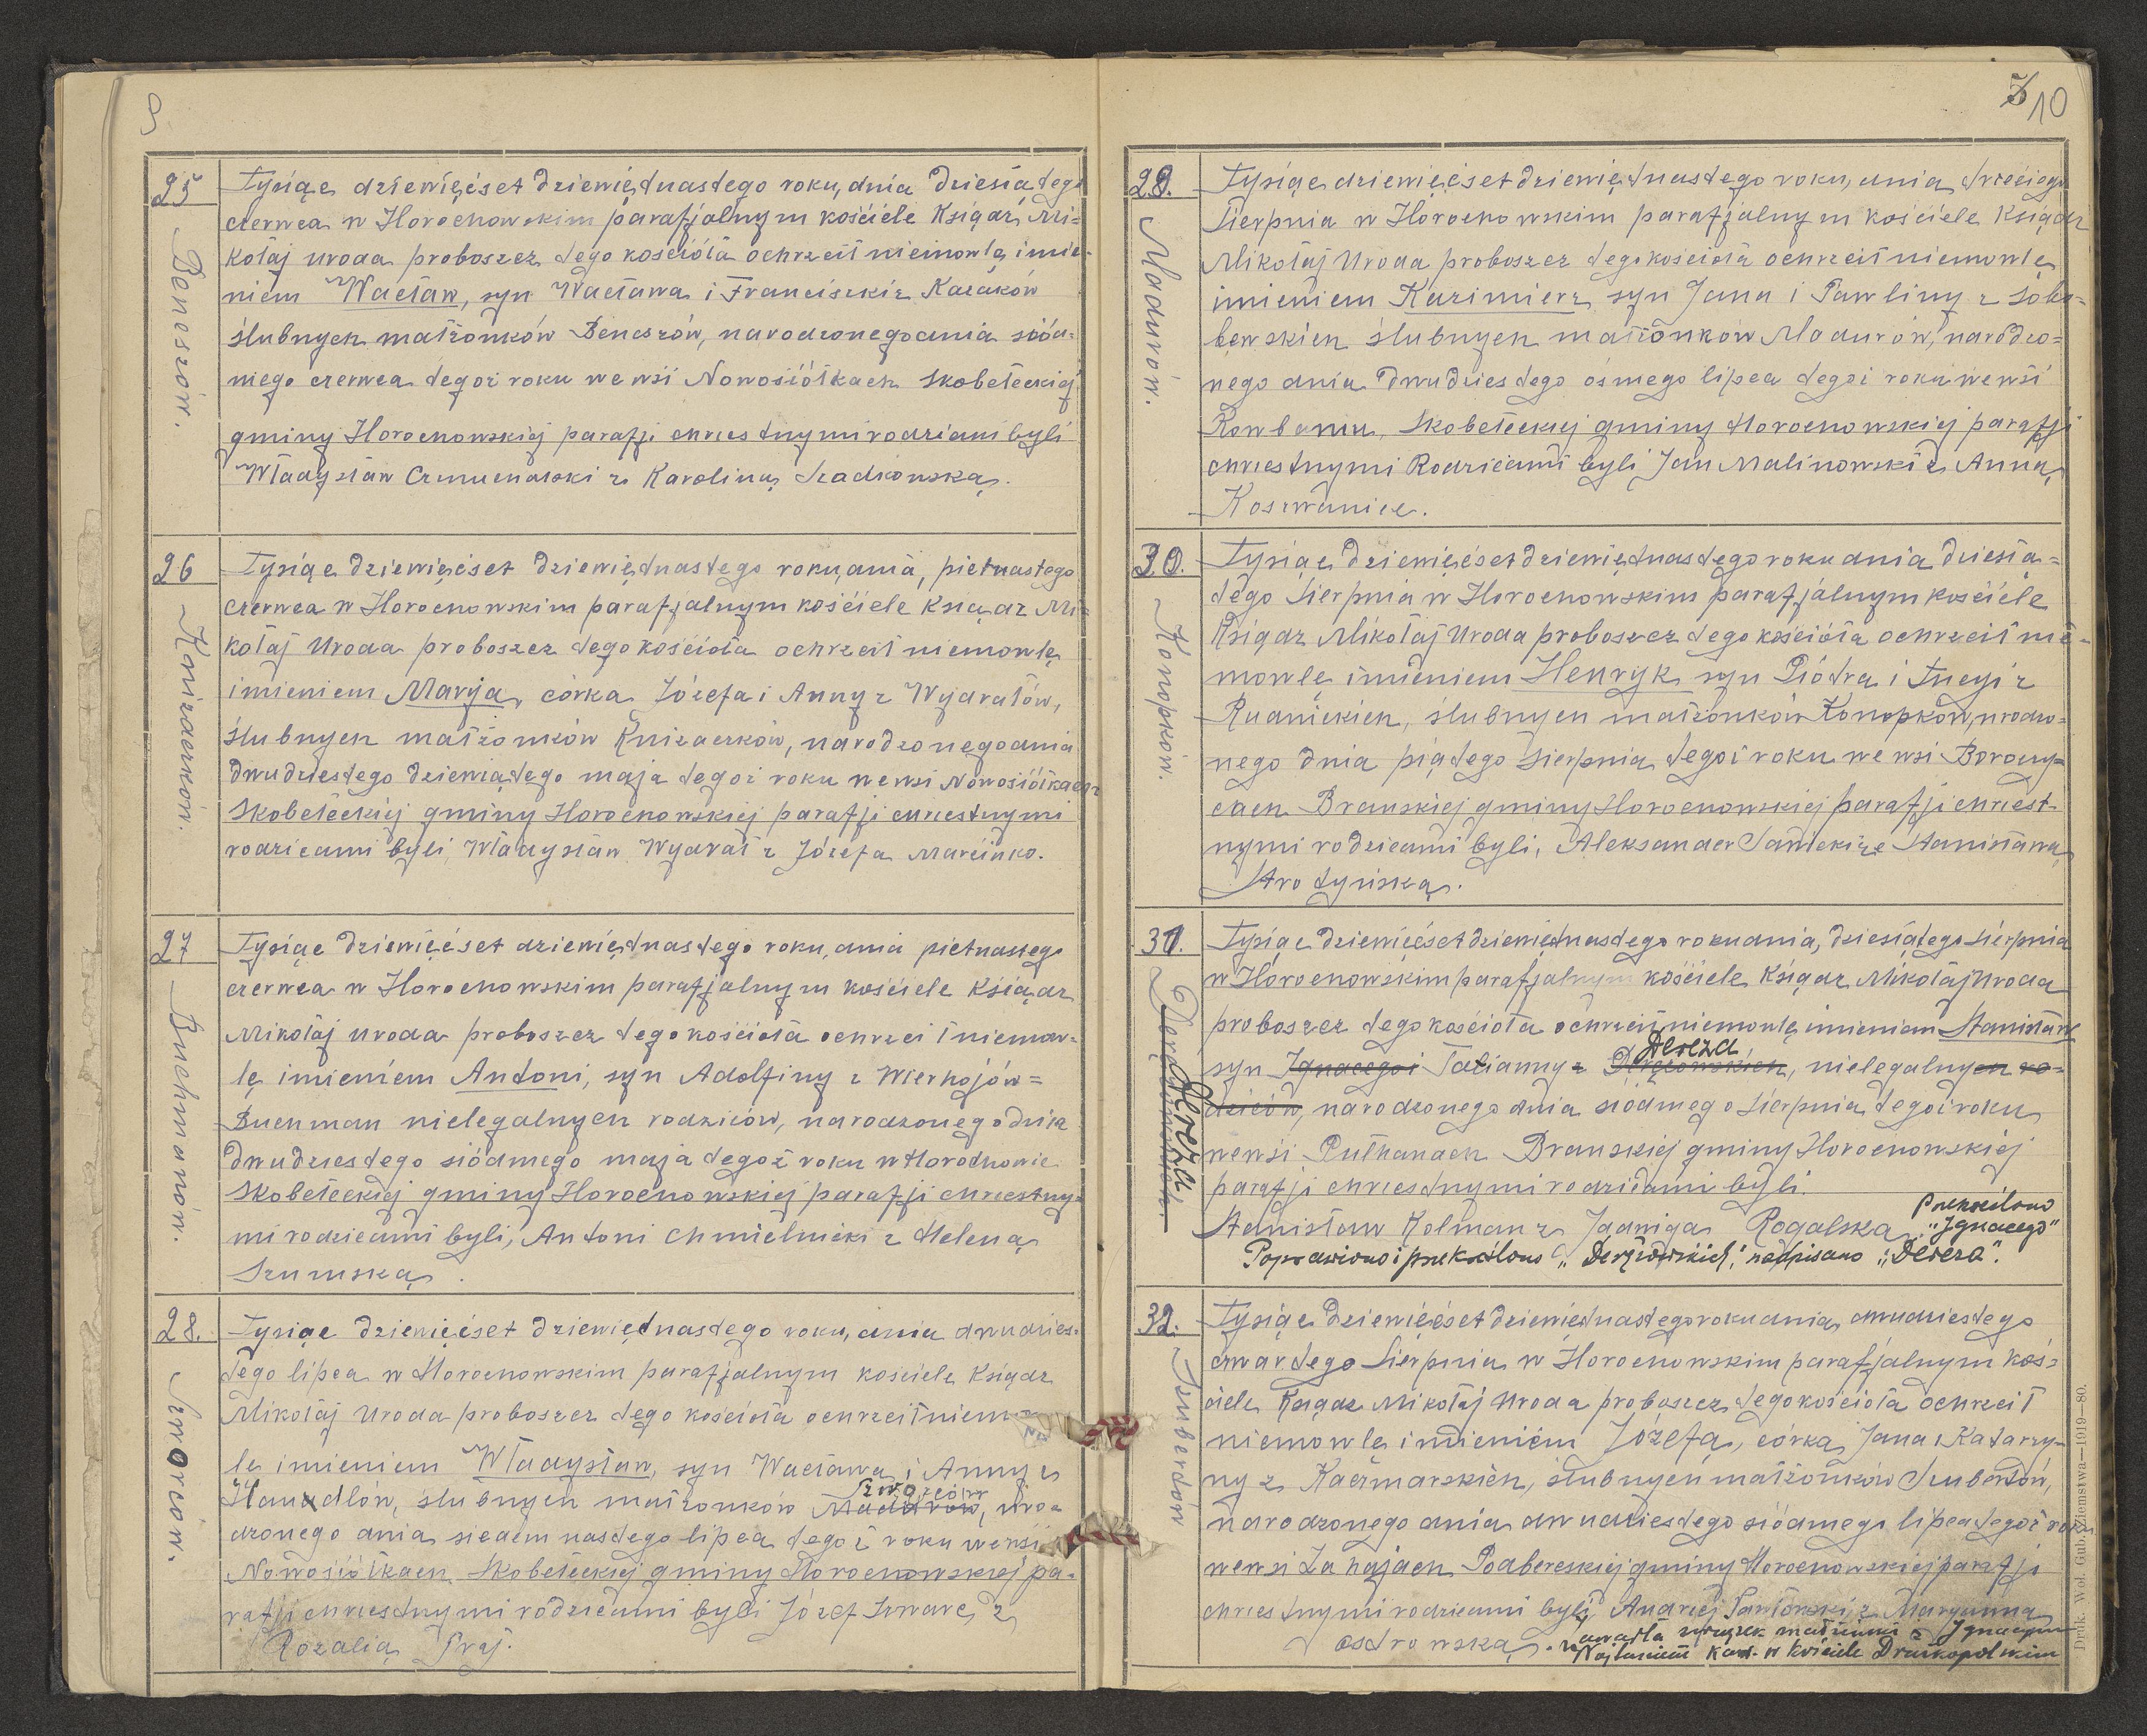 9
25
Beneszów.
Tysiąc dziewięćset dziewiętnastego roku, dnia dziesiątego
czerwca w Horochowskim parafjalnym kościele Ksiądz Mi=
kołaj Uroda proboszcz tego kościoła ochrzcił niemowlę imie=
niem Wacław, syn Wacława i Franciszki z Kazaków
ślubnych małżonków Beneszów, narodzonego dnia siód=
mego czerwca tegoż roku we wsi Nowosiółkach Skobełeckiej
gminy Horochowskiej parafji chrzestnymi rodzicami byli
Władysław z Karoliną Szadkowską.
26
Kniżaczków.
Tysiąc dziewięćset dziewiętnastego roku, dnia, pietnastego
czerwca w Horochowskim parafjalnym kościele Ksiądz Mi=
kołaj Uroda proboszcz tego kościoła ochrzcił niemowlę
imieniem Maryja, córka Józefa i Anny z Wydrałów,
ślubnych małżonków Kniżaczków, narodzonego dnia
dwudziestego dziewiątego maja tegoż roku we wsi Nowosiółkach
Skobełeckiej gminy Horochowskiej parafji chrzestnymi
rodzicami byli, Władysław z Józefa Marcinko.
27
Buchmanów.
Tysiąc dziewięćset dziewiętnastego roku, dnia pietnastego
czerwca w Horochowskim parafjalnym kościele Ksiądz
Mikołaj Uroda proboszcz tego kościoła ochrzcił niemow=
lę imieniem Antoni, syn Adolfiny z Wierhojów=
Buchman nielegalnych rodziców, narodzonego dnia
dwudziestego siódmego maja tegoż roku w Horochowie
Skobełeckiej gminy Horochowskiej parafji chrzestny=
mi rodzicami byli, Antoni Chmielnicki z Heleną
Szumską.
28.
Szworców.
Tysiąc dziewięćset dziewiętnastego roku, dnia dwudzies=
tego lipca w Horochowskim parafjalnym kościele Ksiądz
Mikołaj Uroda proboszcz tego kościoła ochrzcił niemow=
lę imieniem Władysław, syn Wacława i Anny z
Szworców
Haudlów, ślubnych małżonków Madurów, uro=
dzonego dnia siedemnastego lipca tegoż roku we wsi
Nowosiółkach Skobełeckiej gminy Horochowskiej pa=
rafji chrzestnymi rodzicami byli Józef Szwarc z
Rozalią Praj.
7 10
29.
Madurów.
Tysiąc dziewięćset dziewiętnastego roku, dnia trzeciego
Sierpnia w Horochowskim parafjalnym kościele Ksiądz
Mikołaj Uroda proboszcz tego kościoła ochrzcił niemowlę
imieniem Kazimierz syn Jana i Pawliny z Sobo=
lewskich ślubnych małżonków Madurów, narodzo=
nego dnia dwudziestego ósmego lipca tegoż roku we wsi
Skobełeckiej gminy Horochowskiej parafji
chrzestnymi Rodzicami byli Jan Malinowski z Anną
30.
Konopków.
Tysiąc dziewięćset dziewiętnastego roku dnia dziesią=
tego Sierpnia w Horochowskim parafjalnym kościele
Ksiądz Mikołaj Uroda proboszcz tego kościoła ochrzcił nie=
mowlę imieniem Henryk syn Piótra i Łucyi z
Rudnickich, ślubnych małżonków Konopków, urodzo=
nego dnia piątego Sierpnia tegoż roku we wsi Boroczy=
cach Brańskiej gminy Horochowskiej parafji chrzest=
nymi rodzicami byli, Aleksander Sawicki ze Stanisławą
31.
Dereza
Tysiąc dziewięćset dziewiętnastego roku dnia, dziesiątego Sierpnia
w Horochowskim parafjalnym kościele Ksiądz Mikołaj Uroda
proboszcz tego kościoła ochrzcił niemowlę imieniem Stanisław
Dereza
syn Ignacego i Tacianny z Derżowskich, nielegalnych ro=
dziców, narodzonego dnia siódmego Sierpnia tegoż roku
we wsi Pułhanach Brańskiej gminy Horochowskiej
parafji chrzestnymi rodzicami byli.
Stanisław Kolman z Jadwigą Rogalską Przekreślono „Ignacego”
Poprawiono i przekreślono „Derżowskich”, nadpisano „Dereza”.
32.
Szubertów
Tysiąc dziewięćset dziewiętnastego roku dnia, dwudziestego
czwartego Sierpnia w Horochowskim parafjalnym koś=
ciele Ksiądz Mikołaj Uroda proboszcz tego kościoła ochrzcił
niemowlę imieniem Józefa, córka Jana i Katarzy=
ny z Kaczmarskich, ślubnych małżonków Szubertów,
narodzonego dnia dwudziestego siódmego lipca tegoż roku
we wsi Zahajach Podbereskiej gminy Horochowskiej parafji
chrzestnymi rodzicami byli, Andrzej Pawłowski z Maryanną
Ostrowską. zawarła związek małżeński z Ignacym
w kościele Drużkopolskim
Druk. Woł. Gub. Ziemstwa—1919—80.